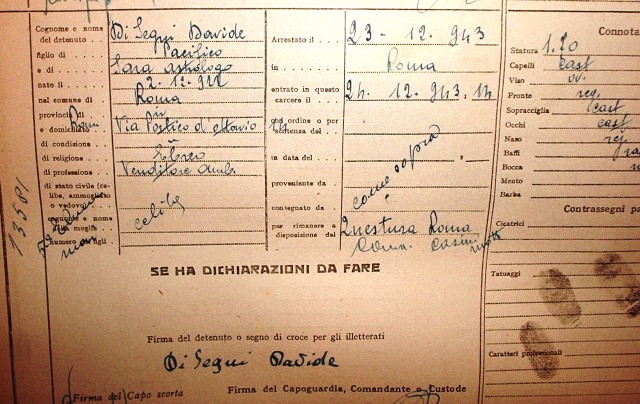 Cognome e nome del detenuto . . Di Segni Davide
figlio di . . . Pacifico
e di . . . . Sara Astrologo
nato il . . . 2.12.911
nel comune di Roma
provincia di Roma
e domiciliato Via Portico d'ottavio
di condizione .
di religione . . Ebreo
di professione . Venditore Amb.
di stato civile (celibe, ammogliato o vedovo) celibe
cognome e nome della moglie
numero dei figli
13581
Arrestato il . . . 23 - 12. 943
in . . . . Roma
entrato in questo carcere il . . . 24. 12. 943. 14
con ordine o per sentenza del .
in data del . . .
proveniente da . come sopra
consegnato da .
per rimanere a disposizione del . Questura Roma
Connota
Statura 1.70
Capelli cast
Viso ov.
Fronte reg.
Sopracciglia cast
Occhi cast
Naso reg
Baffi
Bocca
Mento
Barba
Contrassegni pa
Cicatrici
Tatuaggi
Caratteri professionali
SE HA DICHIARAZIONI DA FARE
Firma del detenuto o segno di croce per gli illetterati
Di Segni Davide
Firma del Capo scorta
Firma del Capoguardia, Comandante o Custode